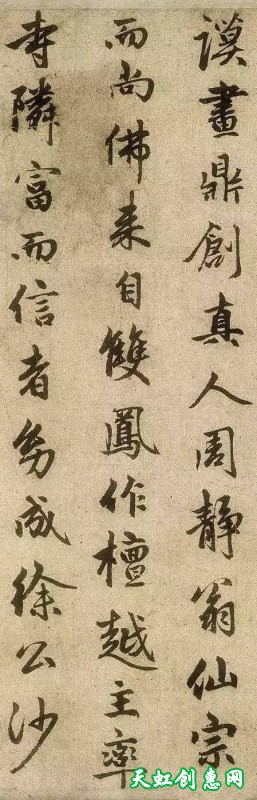 謨畫鼎創真人周靜翁仙宗
而尚佛来自雙鳳作檀越主率
寺隣富而信者努成徐公沙
天虹创惠网